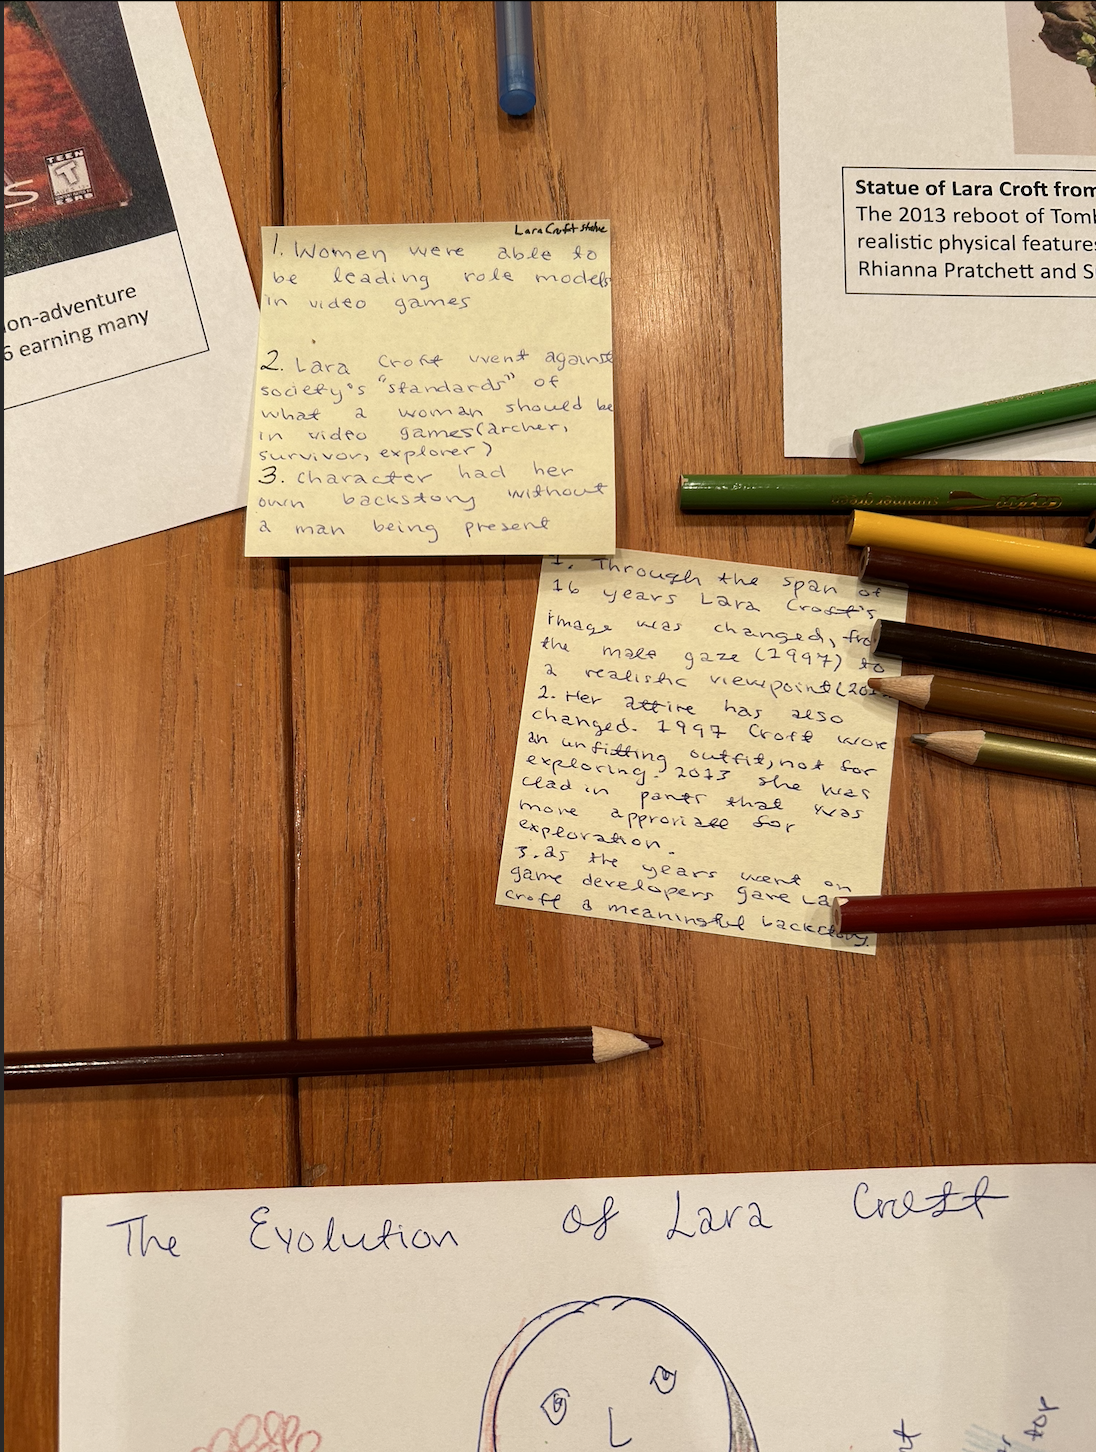 TEEN
T
ESRB
S
ion-adventure
6 earning many
Statue of Lara Croft from
The 2013 reboot of Tomb
realistic physical features
Rhianna Pratchett and S
Lara Croft statue
1. Women were able to
be leading role models
in video games
2. Lara Croft went against
society's "standards" of
what a woman should be
in video games (archer,
survivor, explorer)
3. Character had her
own backstory without
a man being present
1. Through the span of
16 years Lara Croft's
image was changed, fro
the male gaze (1997) to
a realistic viewpoint (201
2. Her attire has also
changed. 1997 Croft wore
an unfitting outfit, not for
exploring. 2013 she was
clad in pants that was
more approriate for
exploration.
3. as the years went on
game developers gave La
croft a meaningful backstory.
The Evolution of Lara Croft
tor